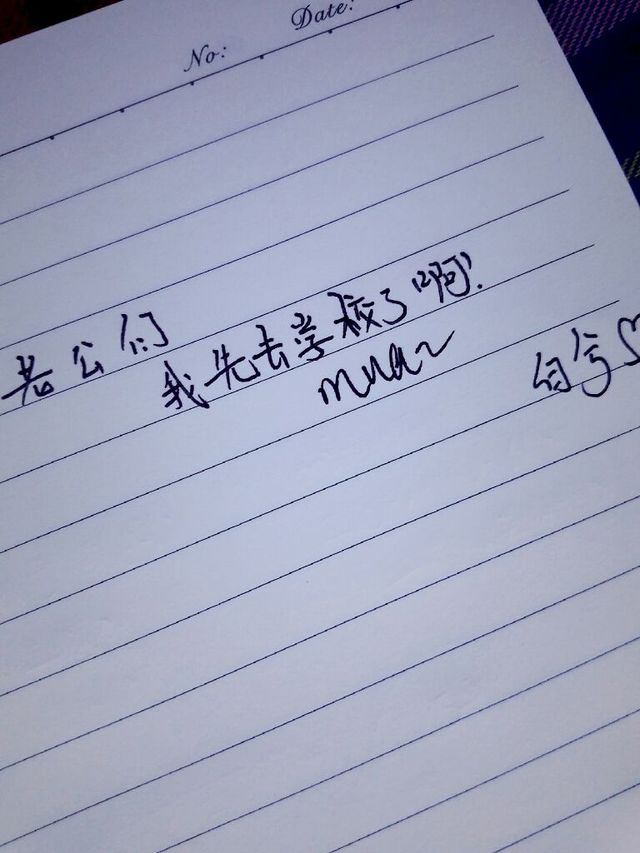 No:
Date:
老公们
我先去学校了啊!
mua~